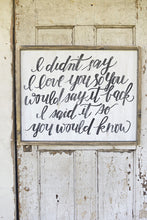 I didn't say
I love you so you
would say it back
I said it so
you would know